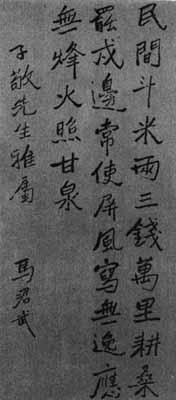 民間斗米兩三錢萬里耕桑
罷戍邊常使屏風寫無逸應
無烽火照甘泉
子敬先生雅屬
馬君武